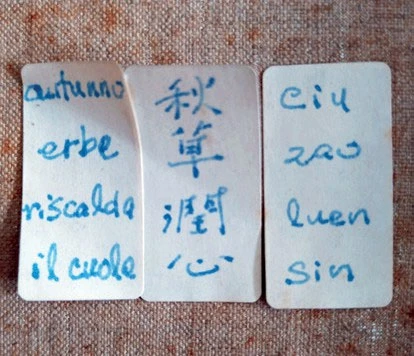 autunno
erbe
riscalda
il cuole
秋
草
潤
心
ciu
zao
luen
sin